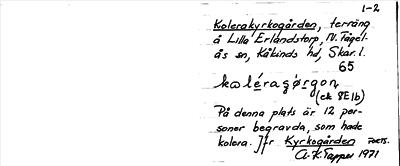 1-2
Kolerakyrkogården, terräng
å Lilla Erlandstorp, N. Tågel-
ås sn, Kåkinds hd, Skar. l.
65
kωléragǿrgon
(ek 8E1b)
På denna plats är 12 per-
soner begravda, som hade
kolera. Jfr Kyrkogården
A. K. Tapper 1971